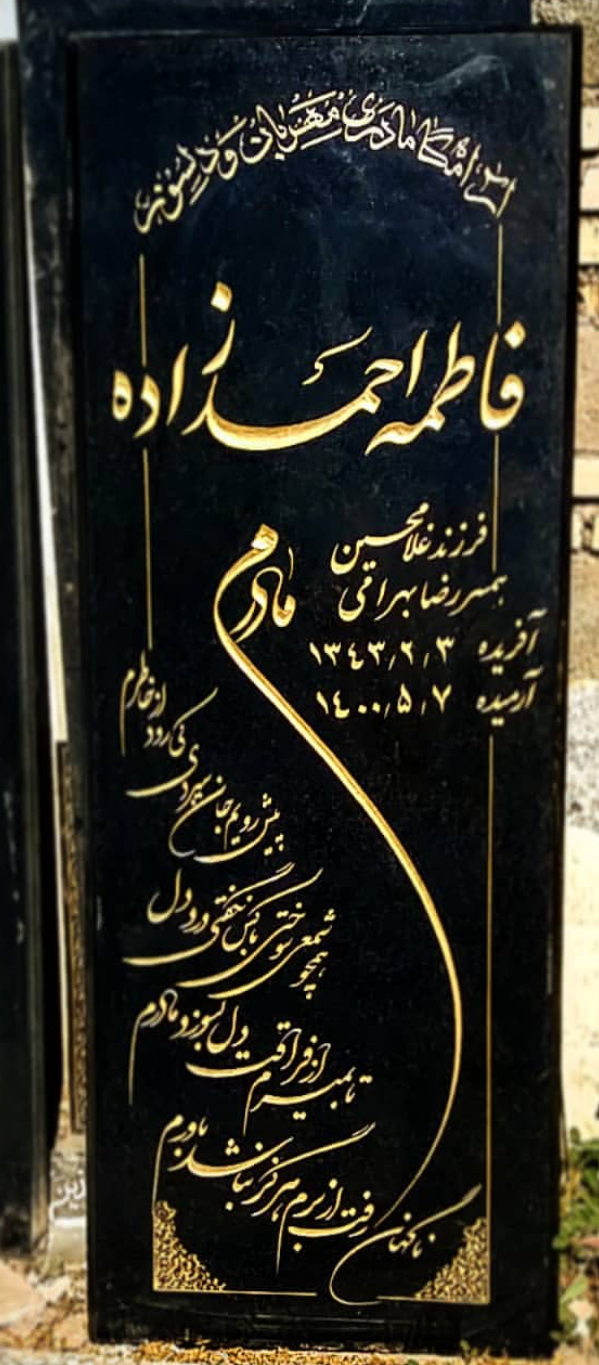 آرامگاه مادری مهربان و دلسوز
فاطمه احمدزاده
فرزند غلامحسین
همسر رضا بهرامی
آفریده ۱۳۴۳/۲/۳
آرمیده ۱۴۰۰/۵/۷
مادرم
پیش رویم جان سپردی کی رود از خاطرم
همچو شمعی سوختی با کس نگفتی درد دل
تا بمیرم از فراقت دل بسوزد مادرم
ناگهان رفت از برم هرگز نباشد باورم